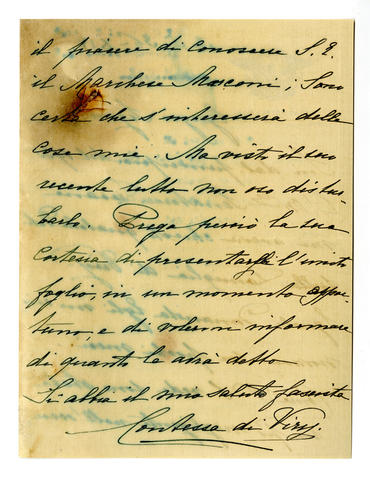 il piacere di conoscere S. E.
il Marchese Marconi; Sono
certa che s'interesserà delle
cose mie. Ma visti il suo
recente lutto non oso distur-
barlo. Prego perciò la sua
cortesia di presentargli l'unito
foglio, in un momento oppor-
tuno, e di volermi informare
di quanto le avrà detto
Si abbia il mio saluto fascista
Contessa di Viry.